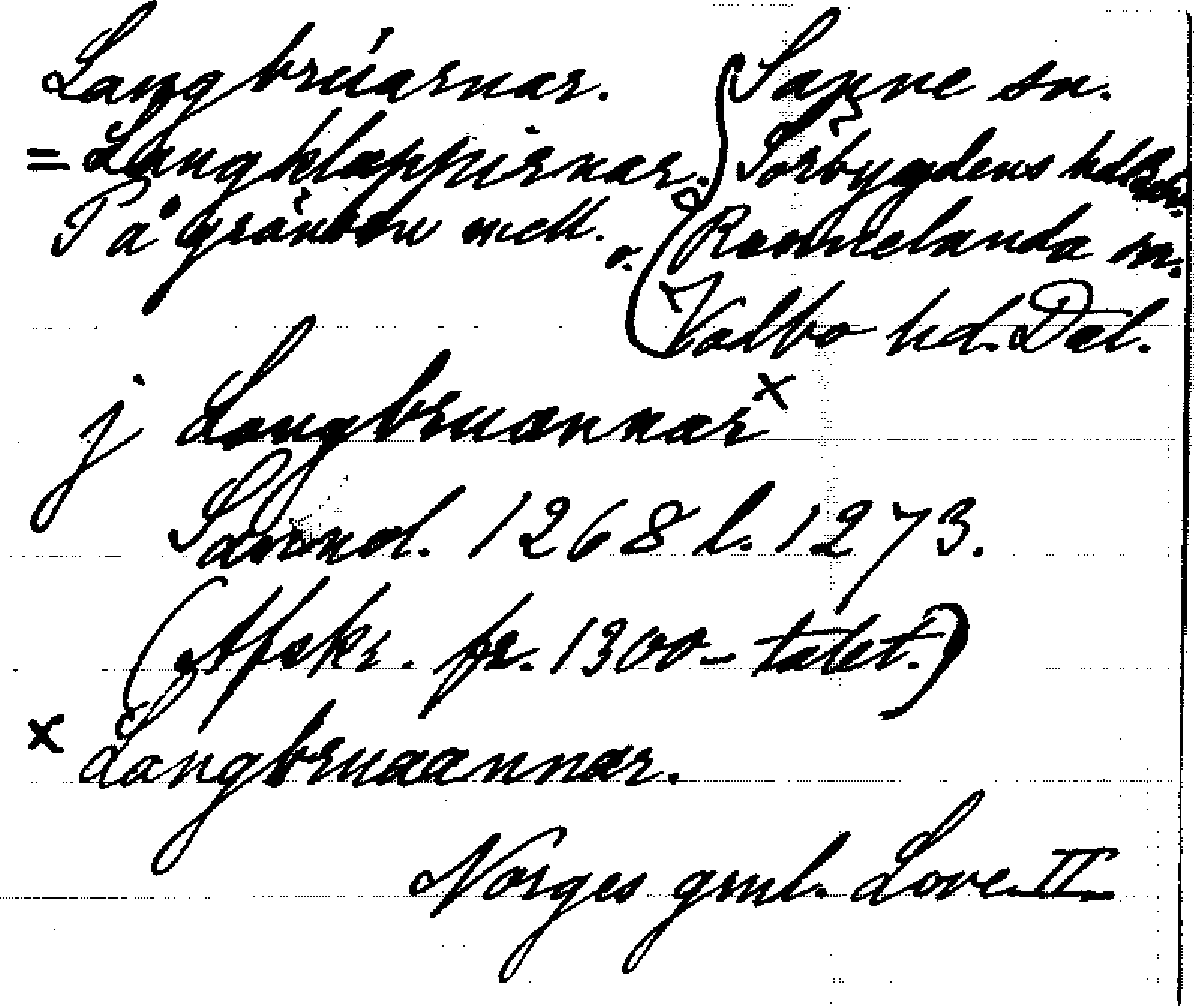 Langbrúarnar.
= Långklappirnar.
På gränsen mell.
Sanne sn.
Sörbygdens hd
o. Rennelanda sn.
Valbo hd. Dal.
j Langbruannar x
Saml. 1268 l. 1273.
(Afskr. fr. 1300-talet.)
x Langbruaannar.
Norges gml. Love II